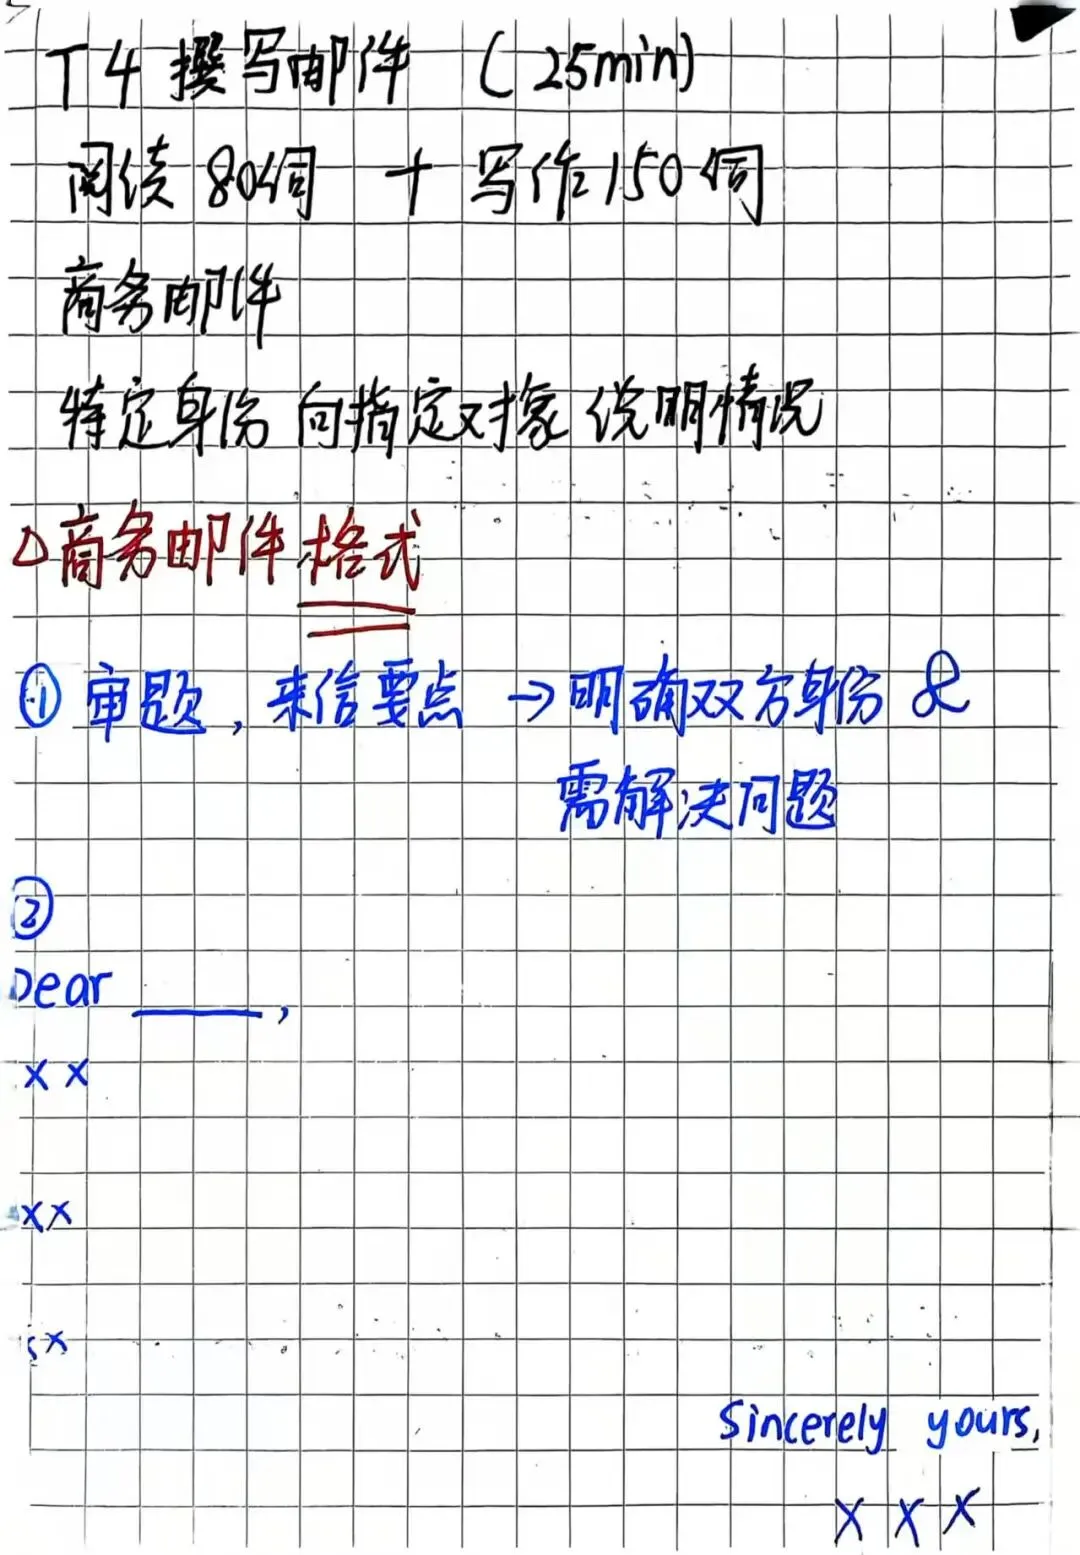 T4 撰写邮件 (25min)
阅读 80词 + 写作150词
商务邮件
特定身份 向指定对象 说明情况
△商务邮件格式
① 审题, 来信要点 → 明确双方身份 &
需解决问题
②
Dear ______,
x x
xx
xx
Sincerely yours,
x x x